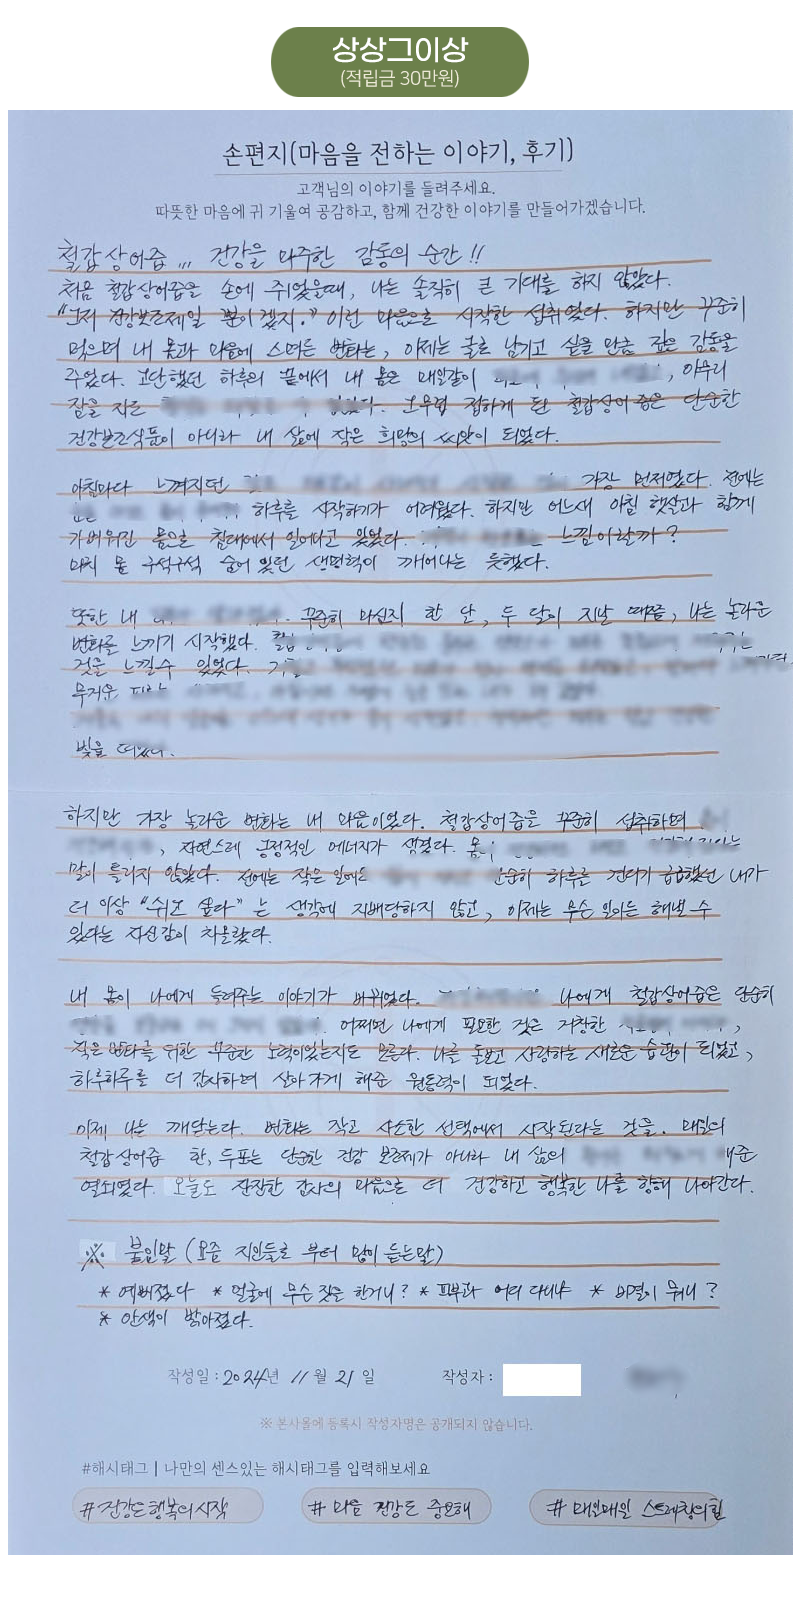 상상그이상
(적립금 30만원)
손편지(마음을 전하는 이야기, 후기)
고객님의 이야기를 들려주세요.
따뜻한 마음에 귀 기울여 공감하고, 함께 건강한 이야기를 만들어가겠습니다.
철갑상어즙... 건강을 마주한 감동의 순간!!
처음 철갑상어즙을 손에 쥐었을때, 나는 솔직히 큰 기대를 하지 않았다.
"그저 건강보조제일 뿐이겠지." 이런 마음으로 시작한 섭취였다. 하지만 꾸준히
먹으며 내 몸과 마음에 스며든 변화는, 이제는 글로 남기고 싶을 만큼 깊은 감동을
주었다. 고단했던 하루의 끝에서 내 몸은 매일같이 , 아무리
잠을 자도 우연히 접하게 된 철갑상어즙은 단순한
건강보조식품이 아니라 내 삶에 작은 희망의 씨앗이 되었다.
아침마다 느껴지던 가장 먼저였다. 전에는
하루를 시작하기가 어려웠다. 하지만 어느새 아침 햇살과 함께
가벼워진 몸으로 침대에서 일어나고 있었다. 느낌이랄까?
마치 몸 구석구석 숨어있던 생명력이 깨어나는 듯했다.
또한 내 꾸준히 마신지 한 달, 두 달이 지날 때쯤, 나는 놀라운
변화를 느끼기 시작했다.
것을 느낄수 있었다.
무거운
빛을 띠었다.
하지만 가장 놀라운 변화는 내 마음이었다. 철갑상어즙을 꾸준히 섭취하며
, 자연스레 긍정적인 에너지가 생겼다. 몸이
말이 틀리지 않았다. 전에는 작은 일에도 단순히 하루를 견디기 급급했던 내가
더 이상 "쉬고 싶다"는 생각에 지배당하지 않고, 이제는 무슨 일이든 해낼 수
있다는 자신감이 차올랐다.
내 몸이 나에게 들려주는 이야기가 바뀌었다. 나에게 철갑상어즙은 단순히
어쩌면 나에게 필요한 것은 거창한 ,
작은 변화를 위한 꾸준한 노력이었는지도 모른다. 나를 돌보고 사랑하는 새로운 습관이 되었고,
하루하루를 더 감사하며 살아가게 해준 원동력이 되었다.
이제 나는 깨닫는다. 변화는 작고 사소한 선택에서 시작된다는 것을. 매일의
철갑상어즙 한, 두포는 단순한 건강 보조제가 아니라 내 삶의 해준
열쇠였다. 오늘도 잔잔한 감사의 마음으로 더 건강하고 행복한 나를 향해 나아간다.
※ 붙임말 (요즘 지인들로 부터 많이 듣는말)
* 예뻐졌다 * 얼굴에 무슨 짓을 한거니? * 피부과 어디 다니냐 * 비결이 뭐니?
* 안색이 밝아졌다.
작성일 : 2024년 11월 21일 작성자 :
※ 본사몰에 등록시 작성자명은 공개되지 않습니다.
#해시태그 | 나만의 센스있는 해시태그를 입력해보세요
#건강은행복의시작 #마음 건강도 중요해 #매일매일 스트레칭의힘